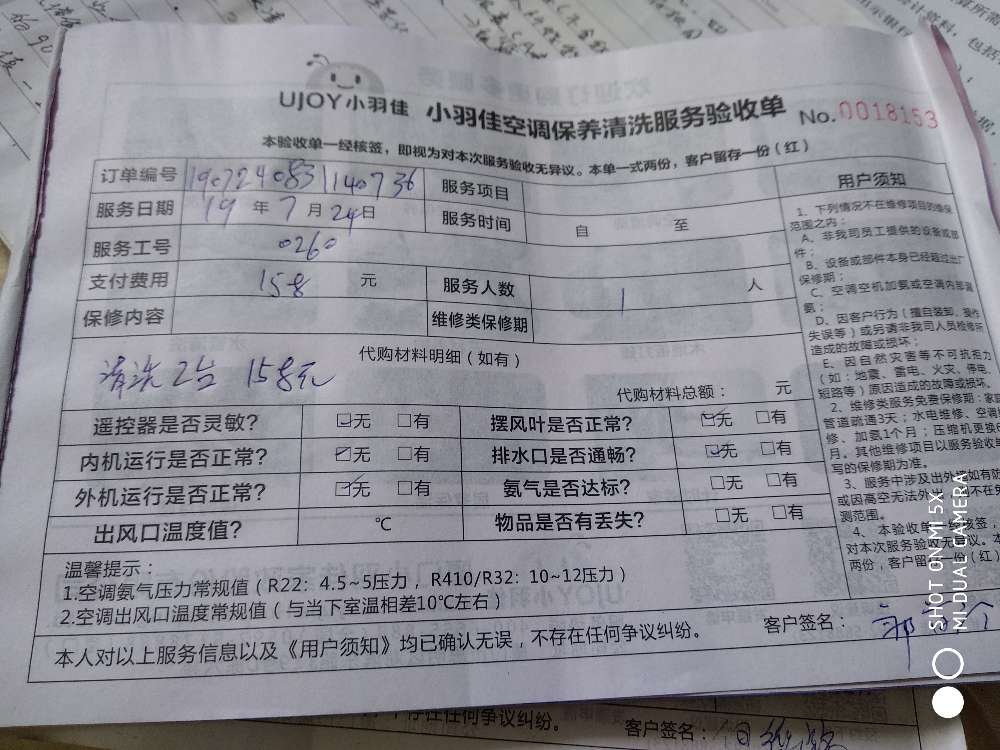 UJOY小羽佳 小羽佳空调保养清洗服务验收单 No.0018153
本验收单一经核签，即视为对本次服务验收无异议。本单一式两份，客户留存一份（红）
订单编号 1907240831140736 服务项目
服务日期 19 年 7 月 24 日 服务时间 自 至
服务工号 0260
支付费用 158 元 服务人数 1 人
保修内容 维修类保修期
代购材料明细（如有）
清洗2台 158元
代购材料总额： 元
遥控器是否灵敏? ☑无 □有 摆风叶是否正常? ☑无 □有
内机运行是否正常? ☑无 □有 排水口是否通畅? ☑无 □有
外机运行是否正常? ☑无 □有 氨气是否达标? □无 □有
出风口温度值? ℃ 物品是否有丢失? □无 □有
温馨提示：
1.空调氨气压力常规值（R22：4.5~5压力，R410/R32：10~12压力）
2.空调出风口温度常规值（与当下室温相差10℃左右）
本人对以上服务信息以及《用户须知》均已确认无误，不存在任何争议纠纷。 客户签名：
用户须知
1、下列情况不在维修项目的维保
范围之内：
A、非我司员工提供的设备或部
件；
B、设备或部件本身已经超过出厂
保修期；
C、空调空机加氨或空调内部漏
氨；
D、因客户行为（擅自装卸、操作
失误等）或另请非我司人员检修所
造成的故障或损坏；
E、因自然灾害等不可抗拒力
（如：地震、雷电、火灾、停电、
短路等）原因造成的故障或损坏。
2、维修类服务免费保修期：家庭
管道疏通3天；水电维修、空调维
修、加氨1个月；压缩机更换6
月。其他维修项目以服务验收单
写的保修期为准。
3、服务中涉及出外墙如有
或因高空无法外出 不在
测范围。
4、本验收单一经核签，
对本次服务验收无异议。本
两份，客户留存一份（红）
SHOT ON MI 5X
MI DUAL CAMERA
不存在任何争议纠纷。 客户签名：